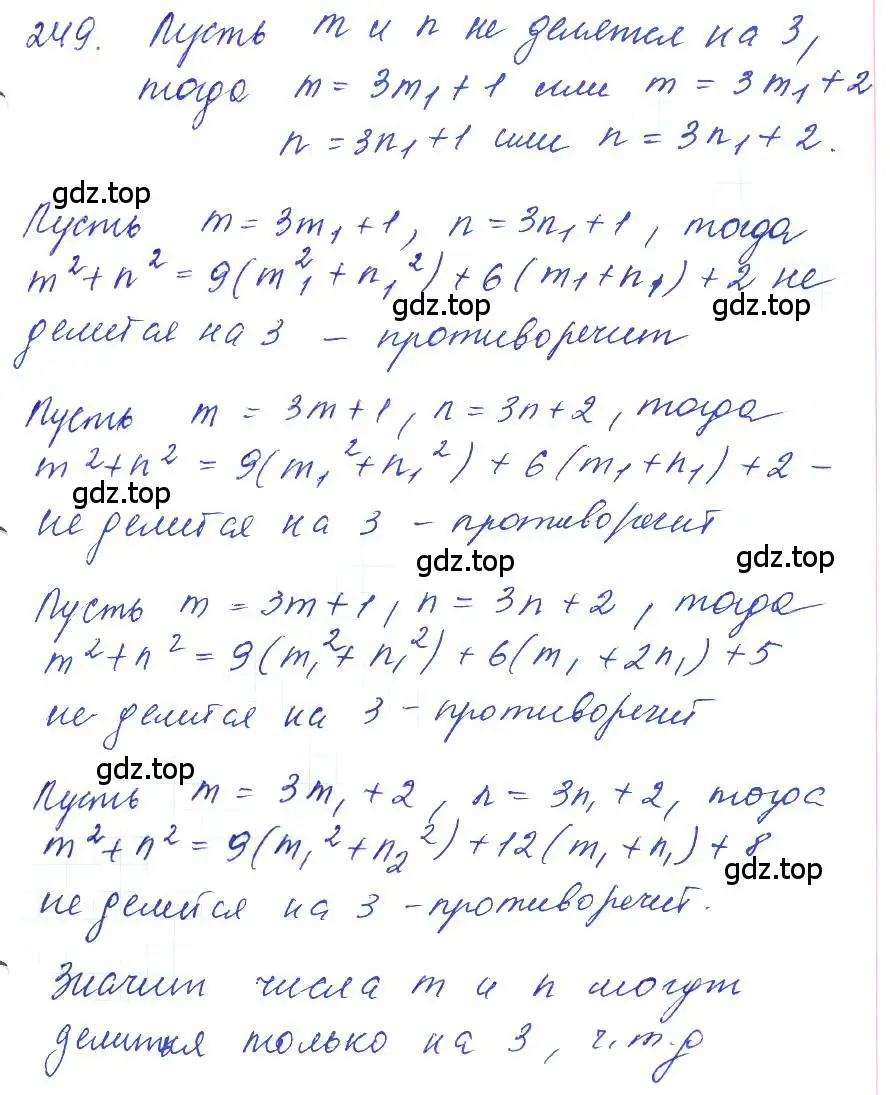 249. Пусть m и n не делятся на 3,
тогда m = 3m₁ + 1 или m = 3m₁ + 2
n = 3n₁ + 1 или n = 3n₁ + 2.
gdz.top
Пусть m = 3m₁ + 1, n = 3n₁ + 1, тогда
m² + n² = 9(m₁² + n₁²) + 6(m₁ + n₁) + 2 не
gdz.top gdz.top
делится на 3 – противоречит
Пусть m = 3m + 1, n = 3n + 2, тогда
m² + n² = 9(m₁² + n₁²) + 6(m₁ + n₁) + 2 –
gdz.top
не делится на 3 – противоречит
gdz.top gdz.top
Пусть m = 3m + 1, n = 3n + 2, тогда
m² + n² = 9(m₁² + n₁²) + 6(m₁ + 2n₁) + 5
не делится на 3 – противоречит
gdz.top
Пусть m = 3m₁ + 2, n = 3n₁ + 2, тогда
m² + n² = 9(m₁² + n₂²) + 12(m₁ + n₁) + 8
gdz.top
не делится на 3 – противоречит.
Значит числа m и n могут
делиться только на 3, ч.т.д